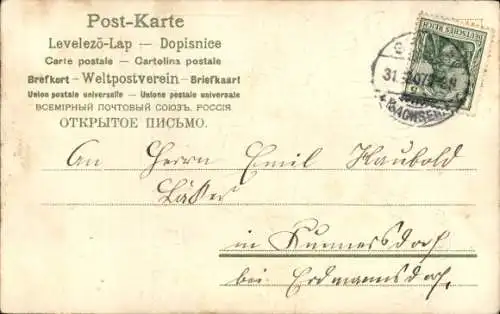 Post-Karte
Levelező-Lap — Dopisnice
Carte postale — Cartolina postale
Brefkort - Weltpostverein - Briefkaart
Union postale universelle — Unione postale universale
ВСЕМІРНЫЙ ПОЧТОВЫЙ СОЮЗЪ. РОССІЯ
ОТКРЫТОЕ ПИСЬМО.
DEUTSCHES REICH
31. 07
SACHSEN
An Herrn Emil Haubold
in Kunnersdorf
bei Erdmannsdorf,